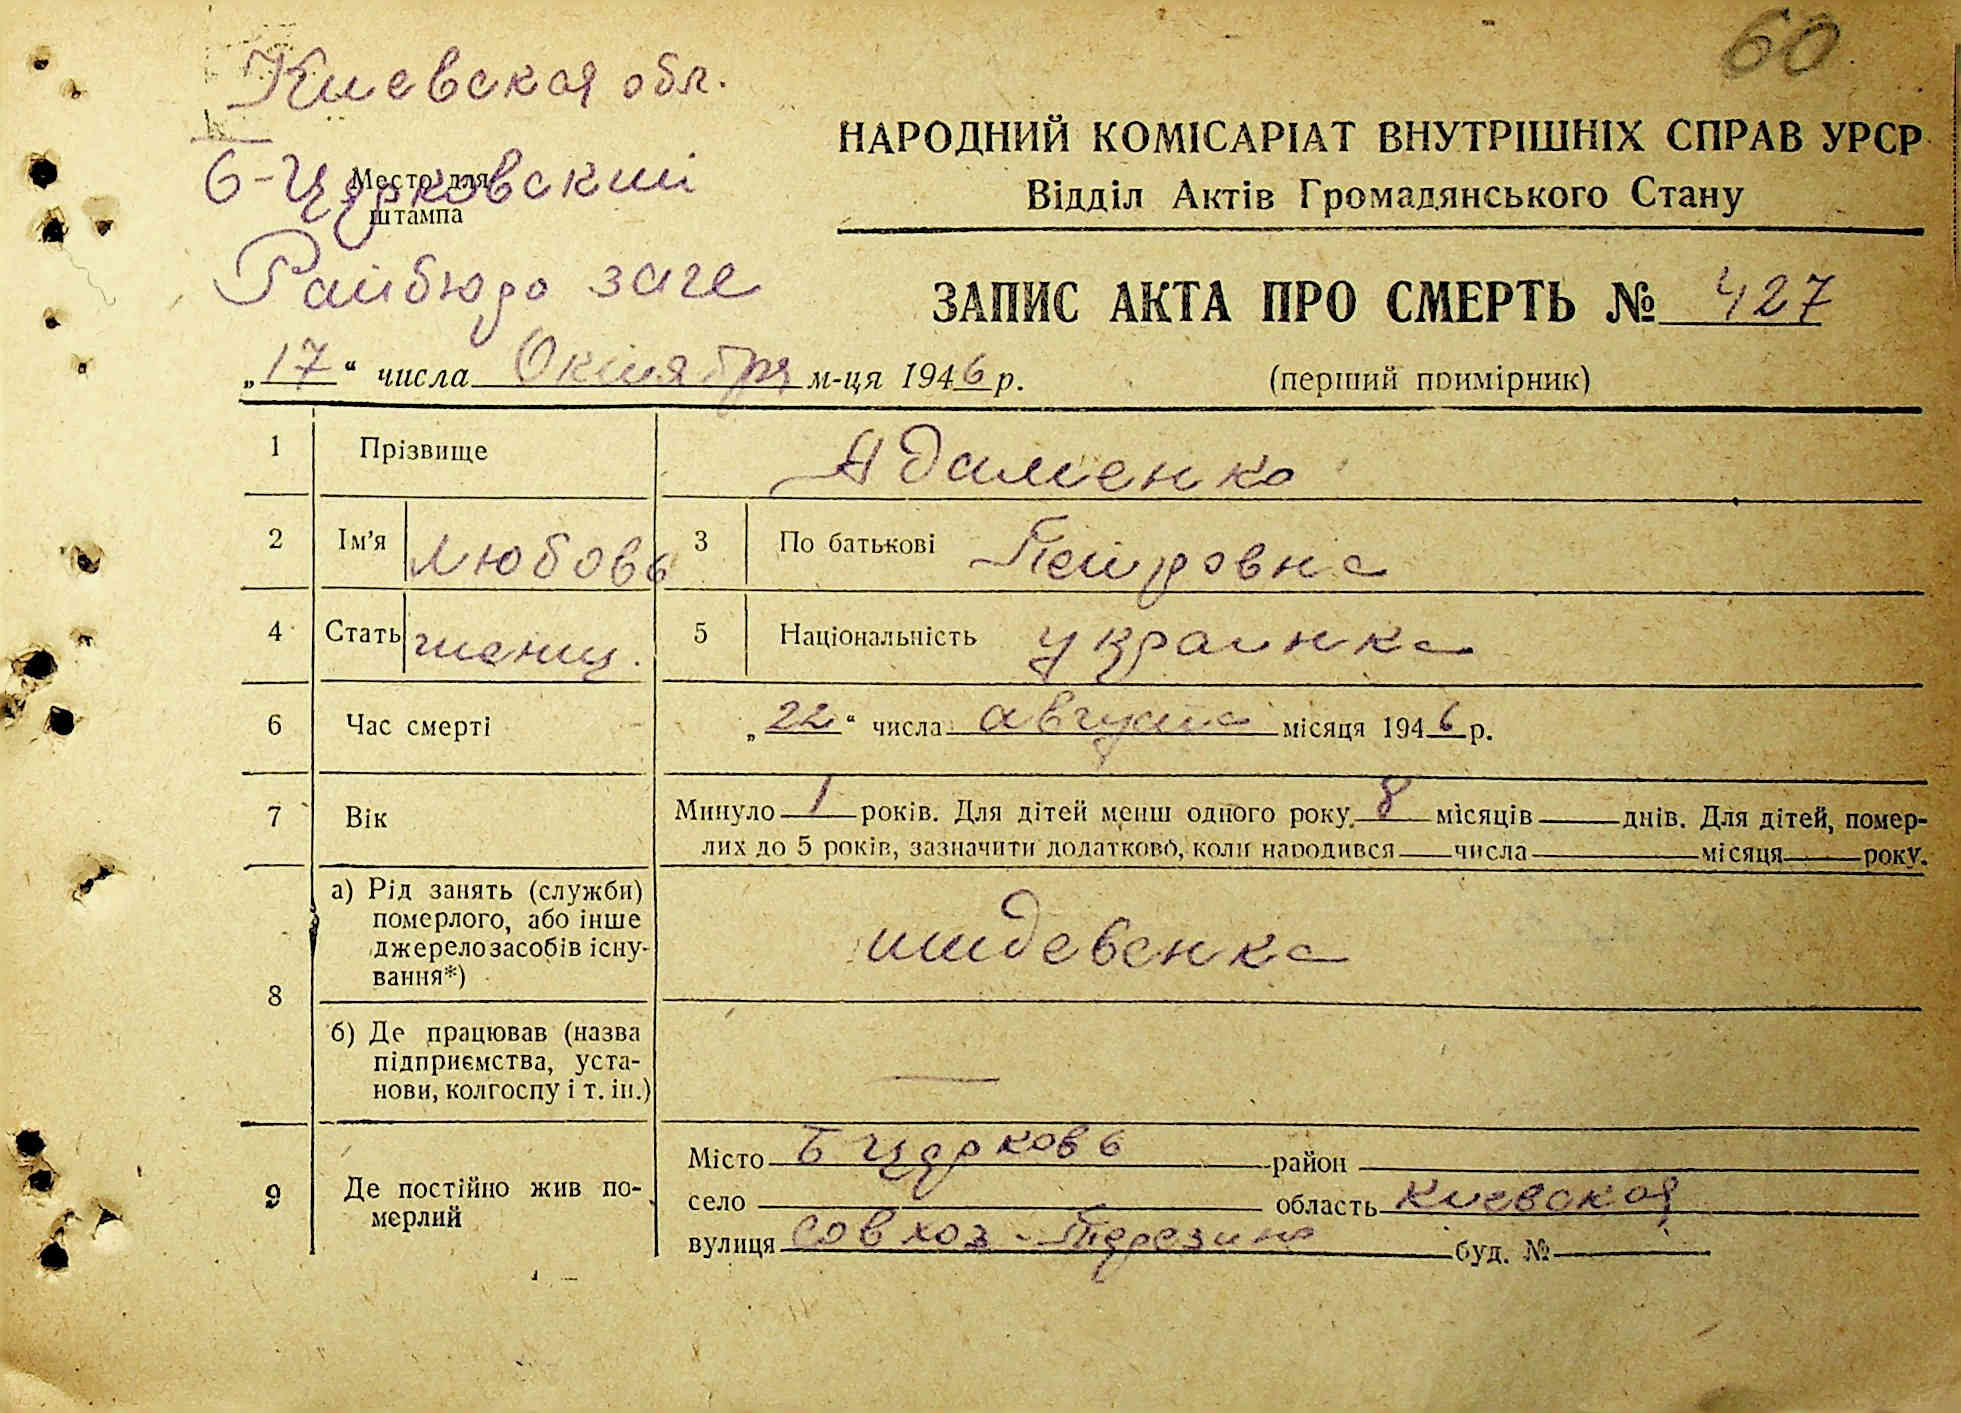 60
Киевская обл.
Б-Церковский
Место для
штампа
Райбюро загс
НАРОДНИЙ КОМІСАРІАТ ВНУТРІШНІХ СПРАВ УРСР
Відділ Актів Громадянського Стану
ЗАПИС АКТА ПРО СМЕРТЬ № 427
„17“ числа Октября м-ця 1946 р.
(перший примірник)
1 Прізвище Адаменко
2 Ім'я Любовь 3 По батькові Петровна
4 Стать женщ. 5 Національність украинка
6 Час смерті „22“ числа августа місяця 1946 р.
7 Вік Минуло 1 років. Для дітей менш одного року 8 місяців днів. Для дітей, помер-
лих до 5 років, зазначити додатково, коли народився числа місяця року.
8 а) Рід занять (служби)
померлого, або інше
джерело засобів існу-
вання*)
иждевенка
б) Де працював (назва
підприємства, уста-
нови, колгоспу і т. ін.)
—
9 Де постійно жив по-
мерлий
Місто Б Церковь район
село область Киевская
вулиця совхоз - Терезино буд. №